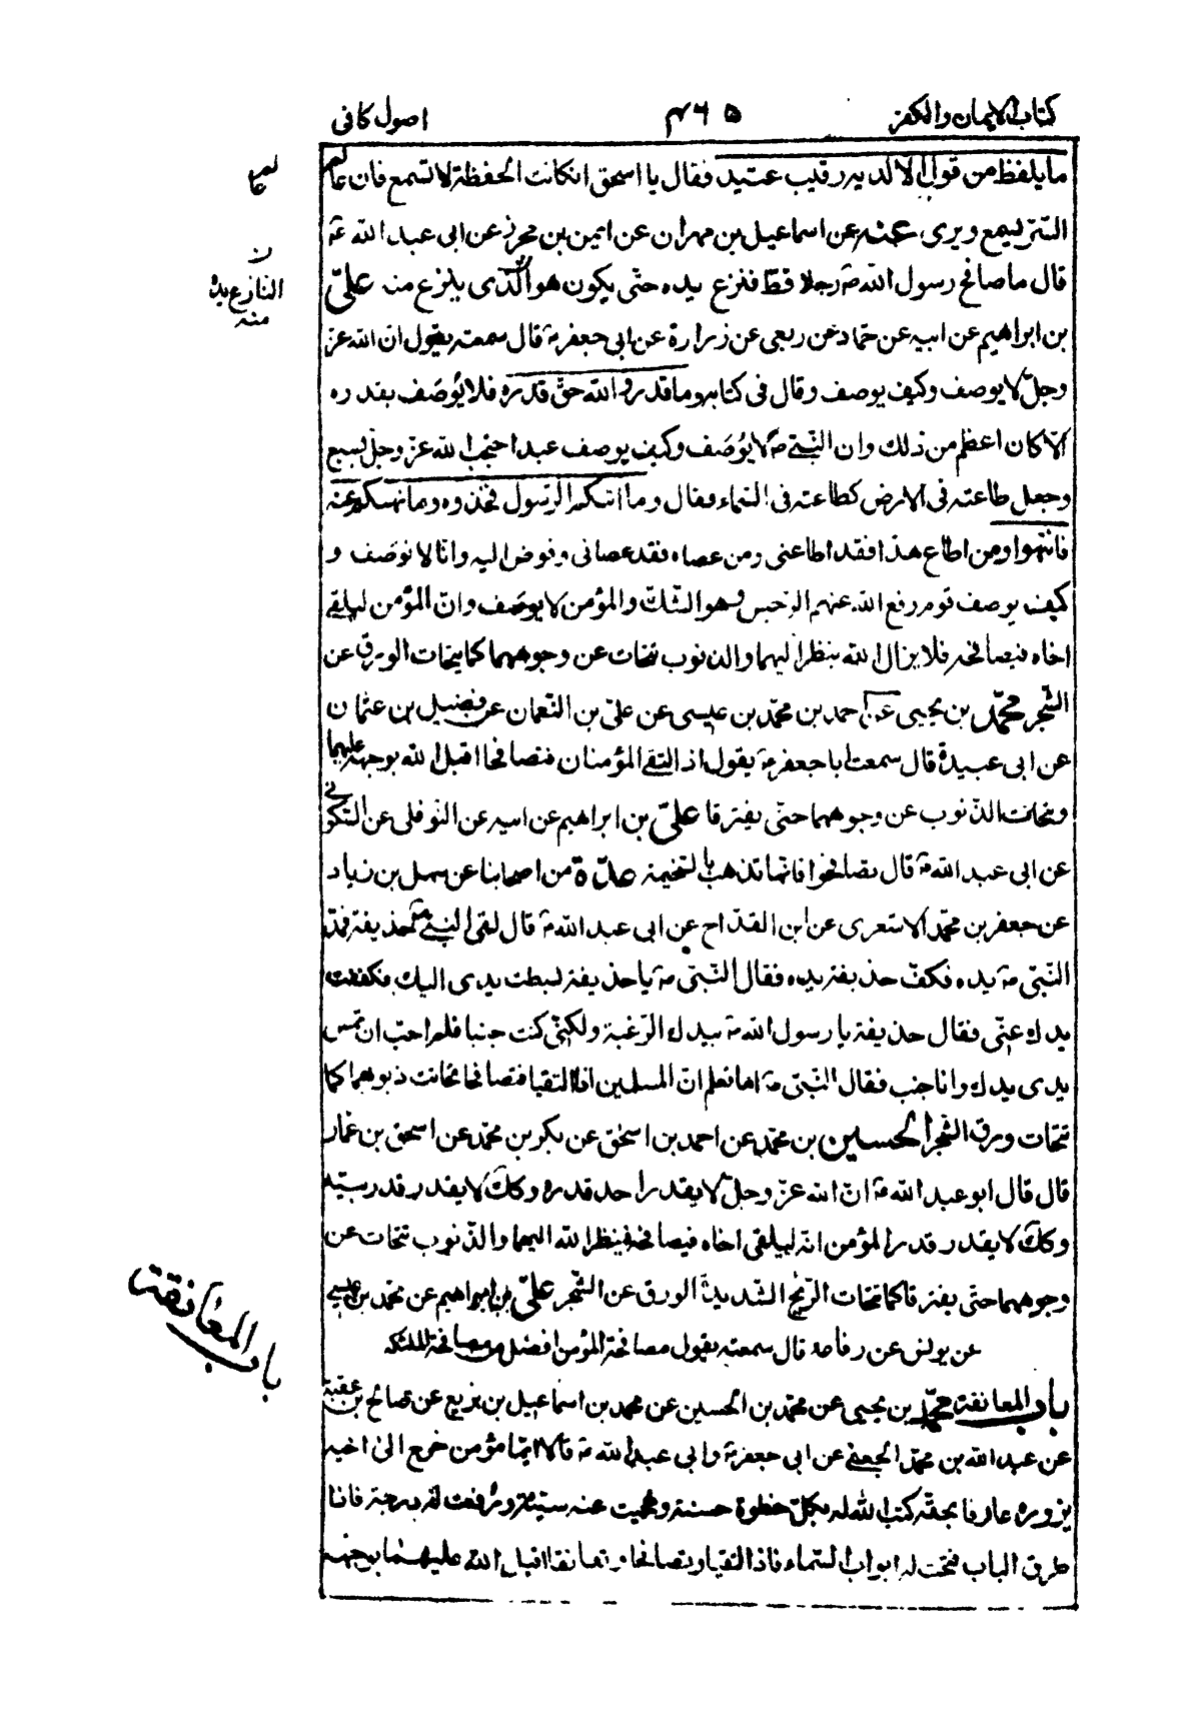 كتاب الايمان والكفر ٤٦٥ اصول كافى
ما يلفظ من قول الا لديه رقيب عتيد فقال يا اسحق ان كانت الحفظة لا تسمع فان عالم
السّرّ يسمع ويرى عنه عن اسماعيل بن مهران عن ايمن بن محرز عن ابى عبد الله ع
قال ما صافح رسول الله ص رجلا قطّ فنزع يده حتّى يكون هو الّذى ينزع منه علىّ
بن ابراهيم عن ابيه عن حمّاد عن ربعى عن زرارة عن ابى جعفر ع قال سمعته يقول ان الله عز
وجلّ لا يوصف وكيف يوصف وقال فى كتابه وما قدروا الله حقّ قدره فلا يُوصَف بقدره
الّا كان اعظم من ذلك وان النّبىّ ص لا يُوصَف وكيف يوصف عبد احتجب الله عزّ وجلّ بسبع
وجعل طاعته فى الارض كطاعته فى السّماء فقال وما اتيكم الرّسول فخذوه وما نهيكم عنه
فانتهوا ومن اطاع هذا فقد اطاعنى ومن عصاه فقد عصانى وفوض اليه وانّا لا نوصَف و
كيف يوصف قوم رفع الله عنهم الرّجس وهو الشّكّ والمؤمن لا يوصَف وانّ المؤمن ليلقى
اخاه فيصافحه فلا يزال الله ينظر اليهما والذنوب تتحات عن وجوههما كما يتحات الورق عن
الشّجر محمّد بن يحيى عن احمد بن محمّد بن عيسى عن علىّ بن النّعمان عن فضيل بن عثمان
عن ابى عبيدة قال سمعت ابا جعفر ع يقول اذ التقى المؤمنان فتصافحا اقبل الله بوجهه عليهما
وتتحات الذّنوب عن وجوههما حتّى يفترقا علىّ بن ابراهيم عن ابيه عن النّوفلى عن السّكونى
عن ابى عبد الله ع قال تصافحوا فانّها تذهب بالسّخيمة عدّة من اصحابنا عن سهل بن زياد
عن جعفر بن محمّد الاشعرى عن ابن القدّاح عن ابى عبد الله ع قال لقى النّبىّ ص حذيفة فمدّ
النّبىّ ص يده فكفّ حذيفة يده فقال النّبىّ ص يا حذيفة بسطت يدى اليك فكففت
يدك عنّى فقال حذيفة يا رسول الله ص بيدك الرّغبة ولكنّى كنت جنبا فلم احبّ ان تمس
يدى يدك وانا جنب فقال النّبىّ ص اما تعلم انّ المسلمين اذا التقيا فتصافحا تحاتت ذنوبهما كما
تتحات ورق الشّجر الحسين بن محمّد عن احمد بن اسحٰق عن بكر بن محمّد عن اسحق بن عمّار
قال قال ابو عبد الله ع انّ الله عزّ وجلّ لا يقدر احد قدره وكك لا يقدر قدر نبيّه
وكك لا يقدر قدر المؤمن انّه ليلقى اخاه فيصافحه فينظر الله اليهما والذّنوب تتحات عن
وجوههما حتّى يفترقا كما تتحات الرّيح الشّديدة الورق عن الشّجر علىّ بن ابراهيم عن محمّد بن عيسى
عن يونس عن رفاعة قال سمعته يقول مصافحة المؤمن افضل من مصافحة الملئكة
باب المعانقة محمّد بن يحيى عن محمّد بن الحسين عن محمد بن اسماعيل بن بزيع عن صالح بن عقبة
عن عبد الله بن محمّد الجعفى عن ابى جعفر ع وابى عبد الله ع قالا ايّما مؤمن خرج الى اخيه
يزوره عارفا بحقّه كتب الله له بكلّ خطوة حسنة ومحيت عنه سيّئة ورفعت له درجة فاذا
طرق الباب فتحت له ابواب السّماء فاذا التقيا وتصافحا وتعانقا اقبل الله عليهما بوجهه
عالم
ن
النازع يده
منه
باب المعانقة